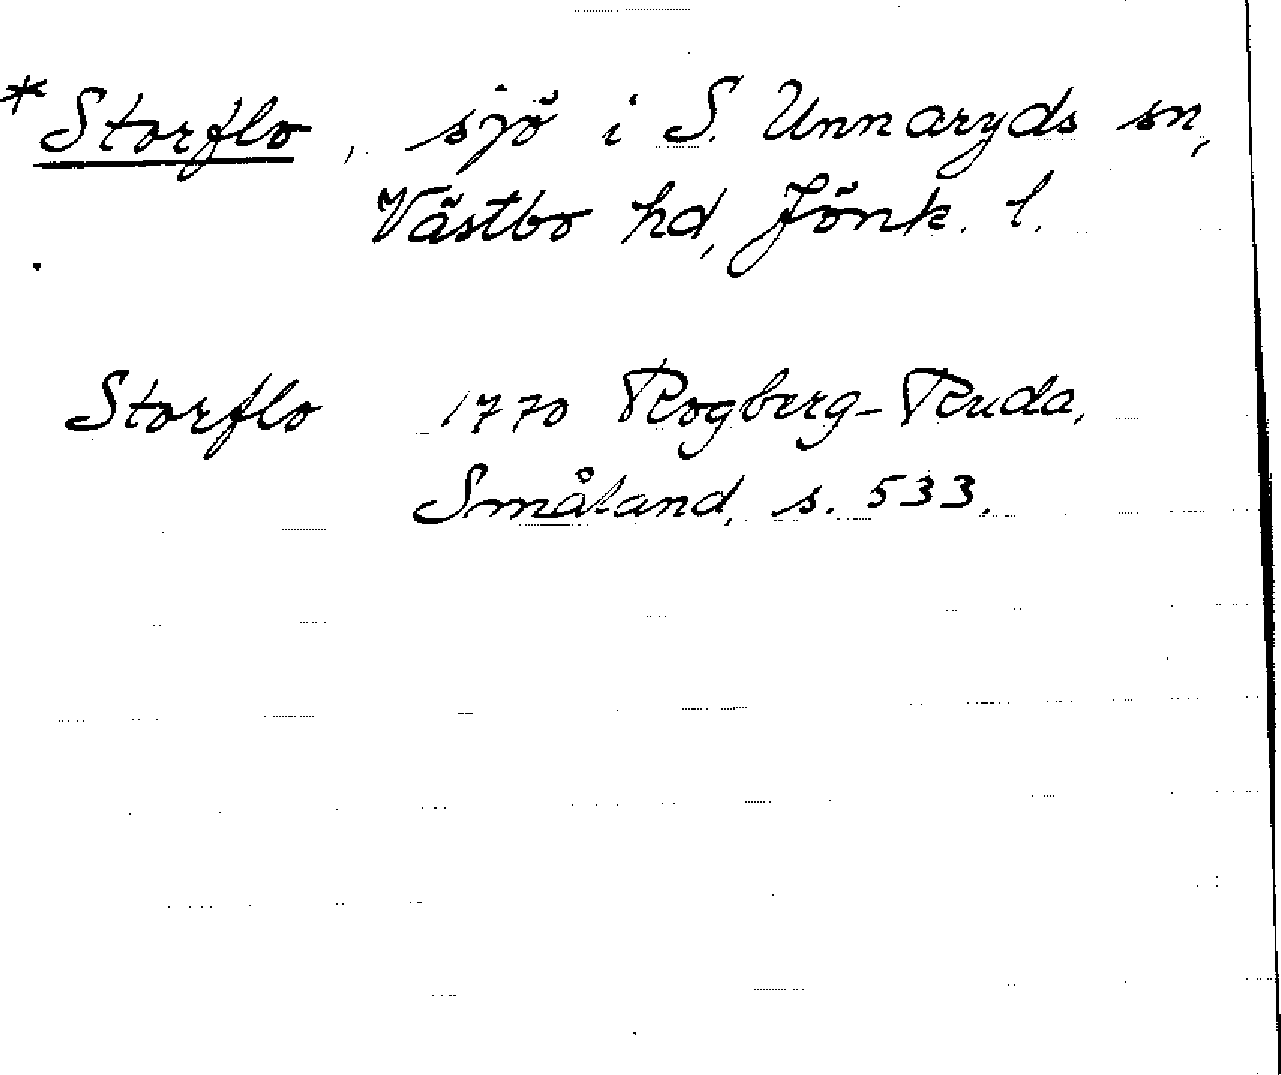 *Storflo, sjö i S. Unnaryds sn,
Västbo hd, Jönk. l.
Storflo 1770 Rogberg-Ruda,
Småland, s. 533.